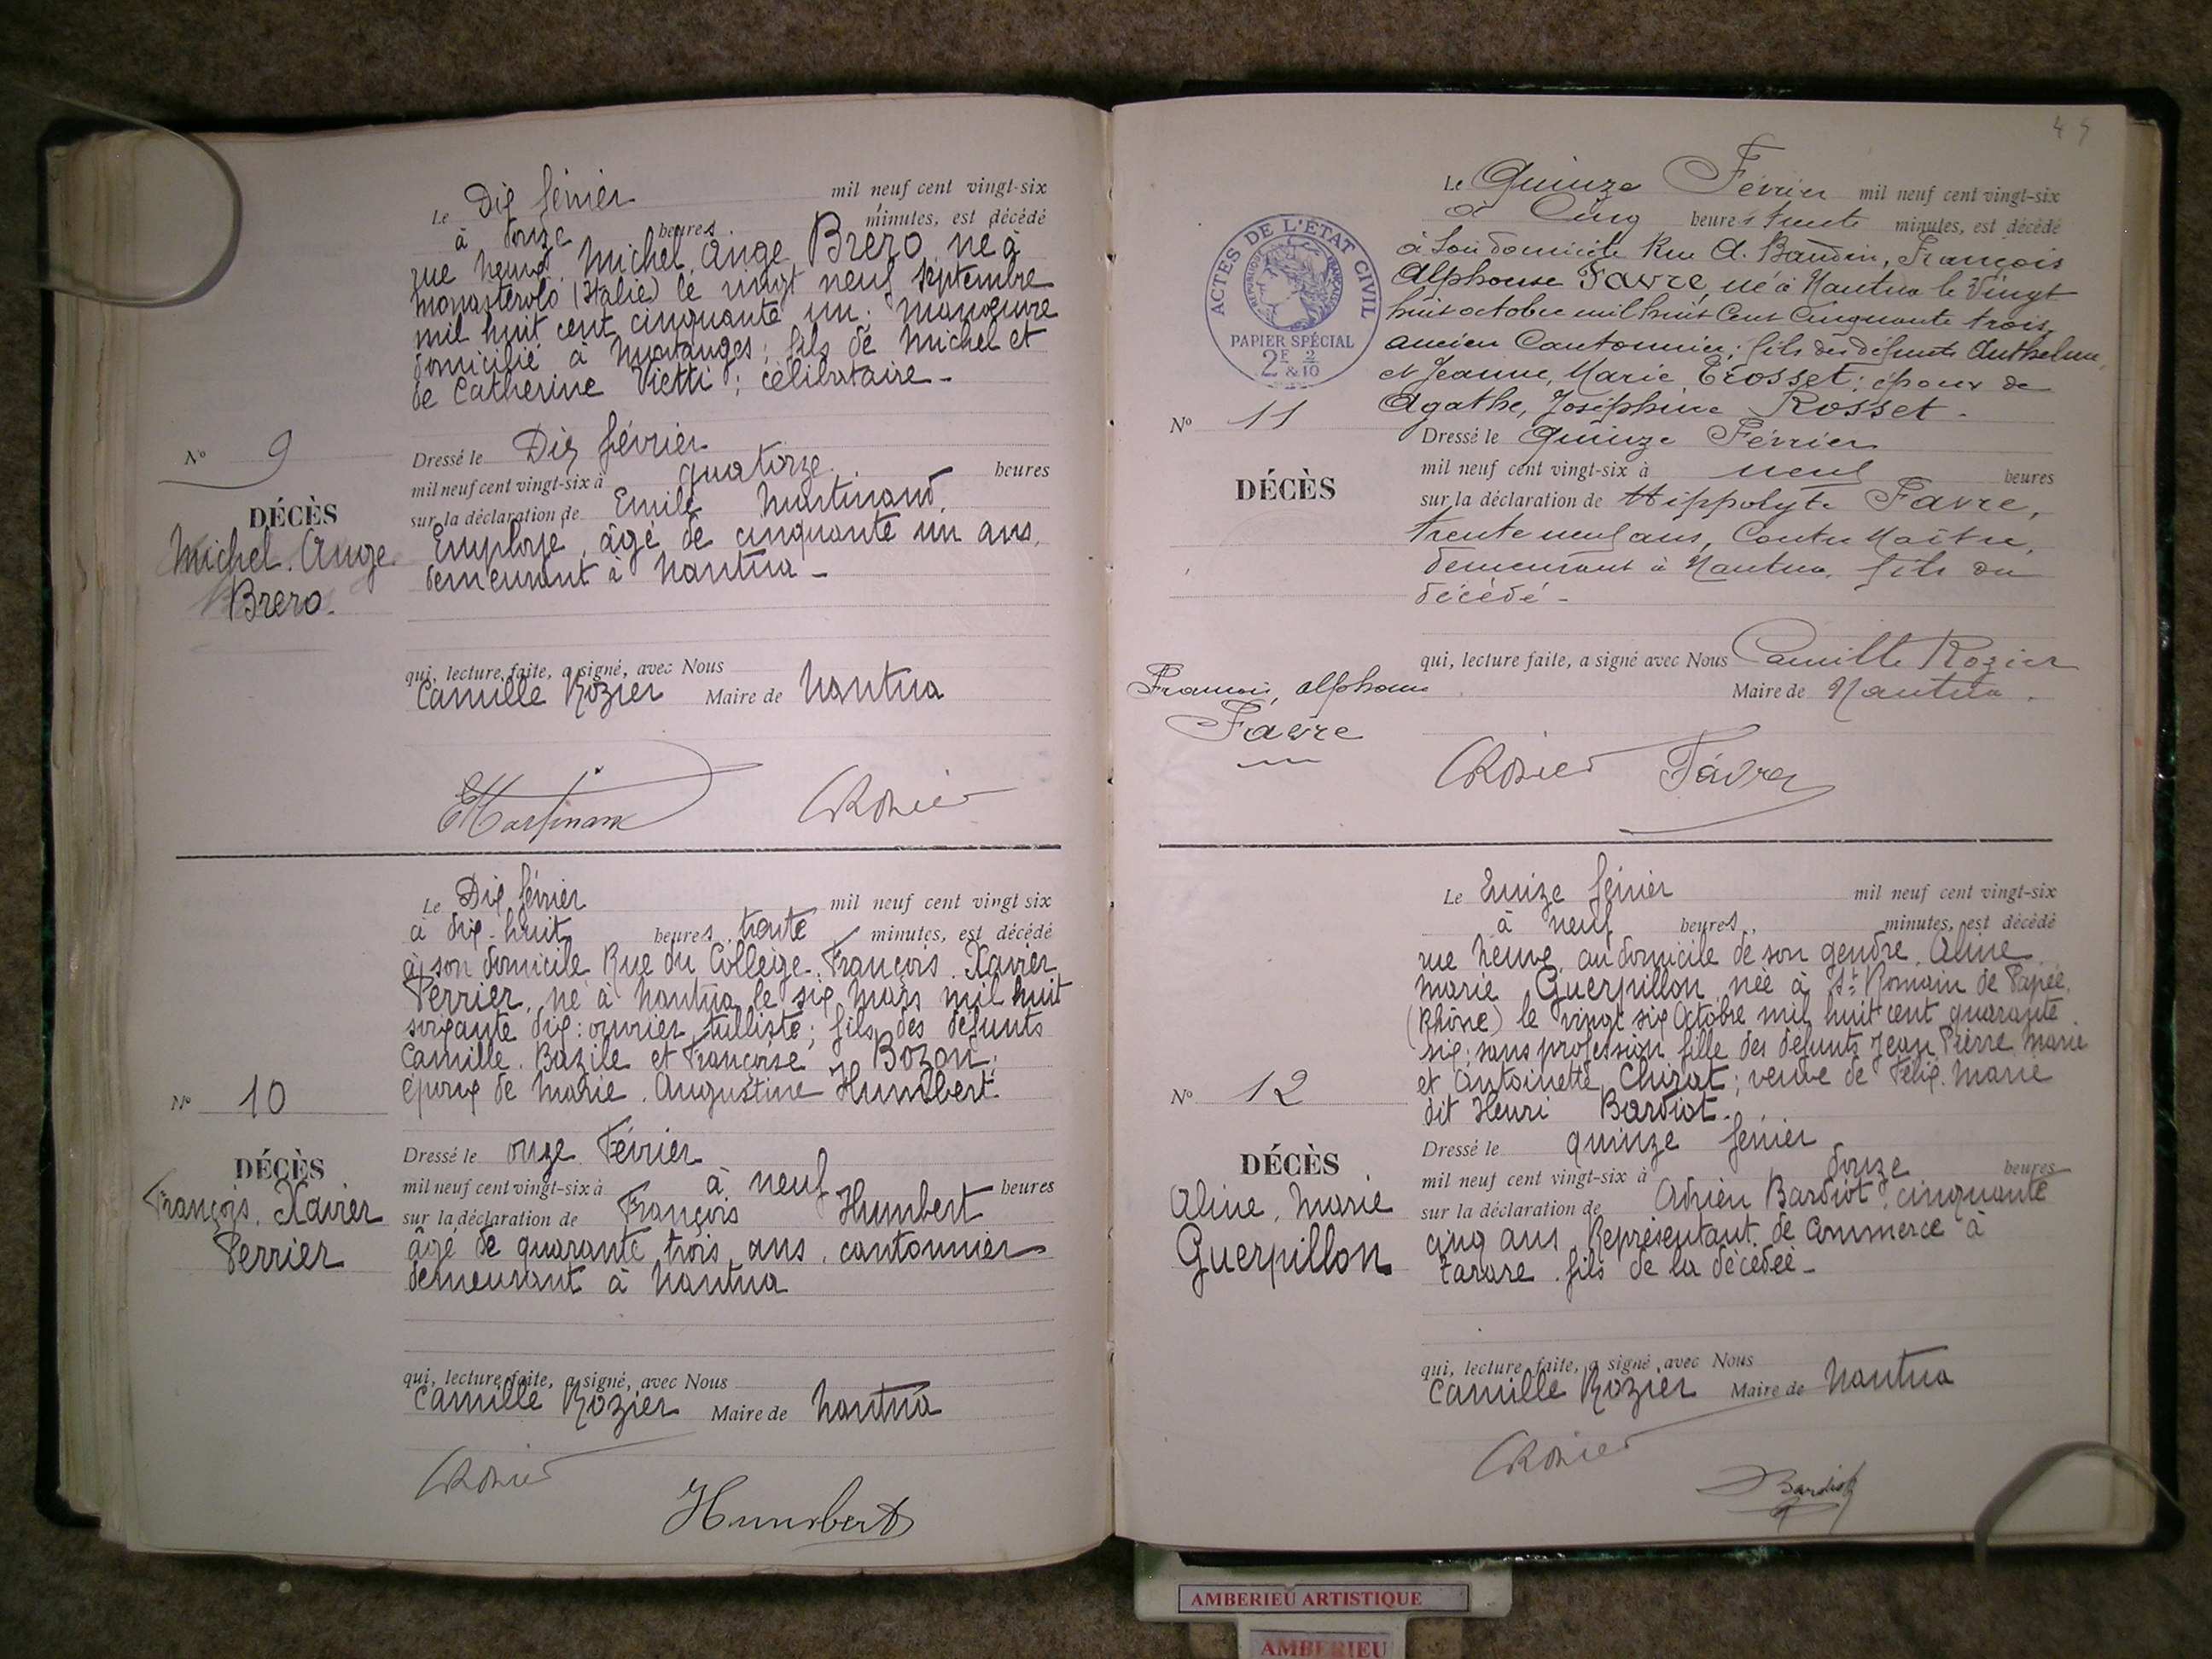 Le Dix février mil neuf cent vingt-six
à douze heures minutes, est décédé
rue neuve, Michel, Ange Brero, né à
monasterolo (Italie) le vingt neuf septembre
mil huit cent cinquante un. manœuvre
domicilié à Montanges; fils de Michel et
de Catherine Vietti; célibataire -
Nº 9
DÉCÈS
Michel. Ange
Brero.
Dressé le Dix février
mil neuf cent vingt-six à quatorze heures
sur la déclaration de Emile Martinand,
Employé, âgé de cinquante un ans,
demeurant à Nantua -
qui, lecture faite, a signé, avec Nous
Camille Rozier Maire de Nantua
EMartinand CRozier
Le Dix février mil neuf cent vingt six
à dix-huit heures trente minutes, est décédé
à son domicile Rue du Collège. François. Xavier
Perrier, né à Nantua le six mars mil huit
soixante dix: ouvrier tulliste; fils des défunts
Camille. Bazile et Françoise Bozon;
époux de Marie. Augustine Humbert.
Nº 10
DÉCÈS
François. Xavier
Perrier
Dressé le onze Février
mil neuf cent vingt-six à à neuf heures
sur la déclaration de François Humbert
âgé de quarante trois ans, cantonnier
demeurant à Nantua
qui, lecture faite, a signé, avec Nous
Camille Rozier Maire de Nantua
CRozier
Humbert
Le Quinze Février mil neuf cent vingt-six
à Cinq heures trente minutes, est décédé
à son domicile Rue A. Baudin, François
Alphonse Favre, né à Nantua le Vingt
huit octobre mil huit Cent Cinquante trois,
ancien Cantonnier; fils des défunts Anthelme,
et Jeanne, Marie Trosset; époux de
Agathe, Joséphine Rosset -
ACTES DE L'ÉTAT CIVIL
RÉPUBLIQUE FRANÇAISE
PAPIER SPÉCIAL
2F & 2/10
Nº 11
DÉCÈS
François, Alphonse
Favre
Dressé le Quinze Février
mil neuf cent vingt-six à neuf heures
sur la déclaration de Hippolyte Favre,
trente neuf ans, Contre Maître,
demeurant à Nantua, fils du
décédé -
qui, lecture faite, a signé avec Nous Camille Rozier
Maire de Nantua.
CRozier Favre
Le Quinze février mil neuf cent vingt-six
à neuf heures, minutes, est décédé
rue neuve, au domicile de son gendre, Aline
marie Guerpillon, née à St Romain de Popée,
(Rhône) le vingt six Octobre mil huit cent quarante
six: sans profession, fille des défunts Jean Pierre Marie
et Antoinette Chizat; veuve de Félix. Marie
dit Henri Bardiot.
Nº 12
DÉCÈS
Aline, Marie
Guerpillon
Dressé le quinze février
mil neuf cent vingt-six à douze heures
sur la déclaration de Adrien Bardiot, cinquante
cinq ans, Représentant de Commerce à
tarare, fils de la décédée -
qui, lecture faite, a signé, avec Nous
Camille Rozier Maire de Nantua
CRozier
Bardiot
AMBERIEU ARTISTIQUE
AMBERIEU